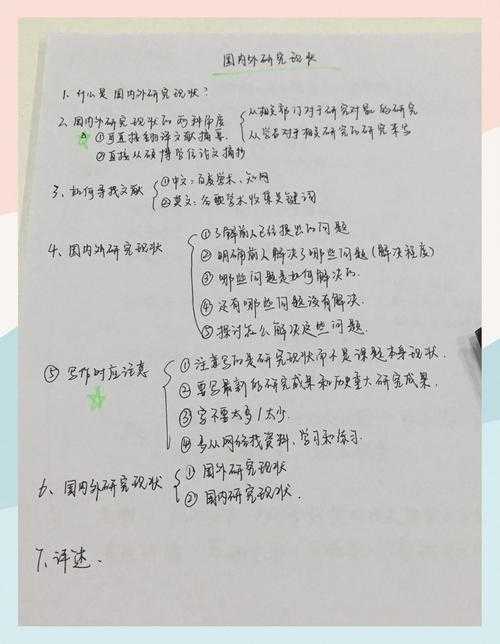 国内外研究现状
1、什么是国内外研究现状?
2、国内外研究现状的两种
从相关部门对于研究对象的研究
从学者对于相关研究的研究
①可直接翻译文献摘要.
②直接从硕博学位论文摘抄
3、如何寻找文献
①中文:百度学术、知网
②英文:谷歌学术收集关键词
4、国内外研究现状
①了解前人已经提出的问题
②明确前人解决了哪些问题(解决程度)
③哪些问题是如何解决的.
④还有哪些问题没有解决.
⑤探讨怎么解决这些问题.
⑤写作时应注意
①注意写的是研究现状而不是课题本身现状.
②要写最新的研究成果和历史重大研究成果.
③字不要太多/太少.
④多从网络找资料、学习和练习.
6、国内外研究现状
①国外研究现状
②国内研究现状.
7、评述.